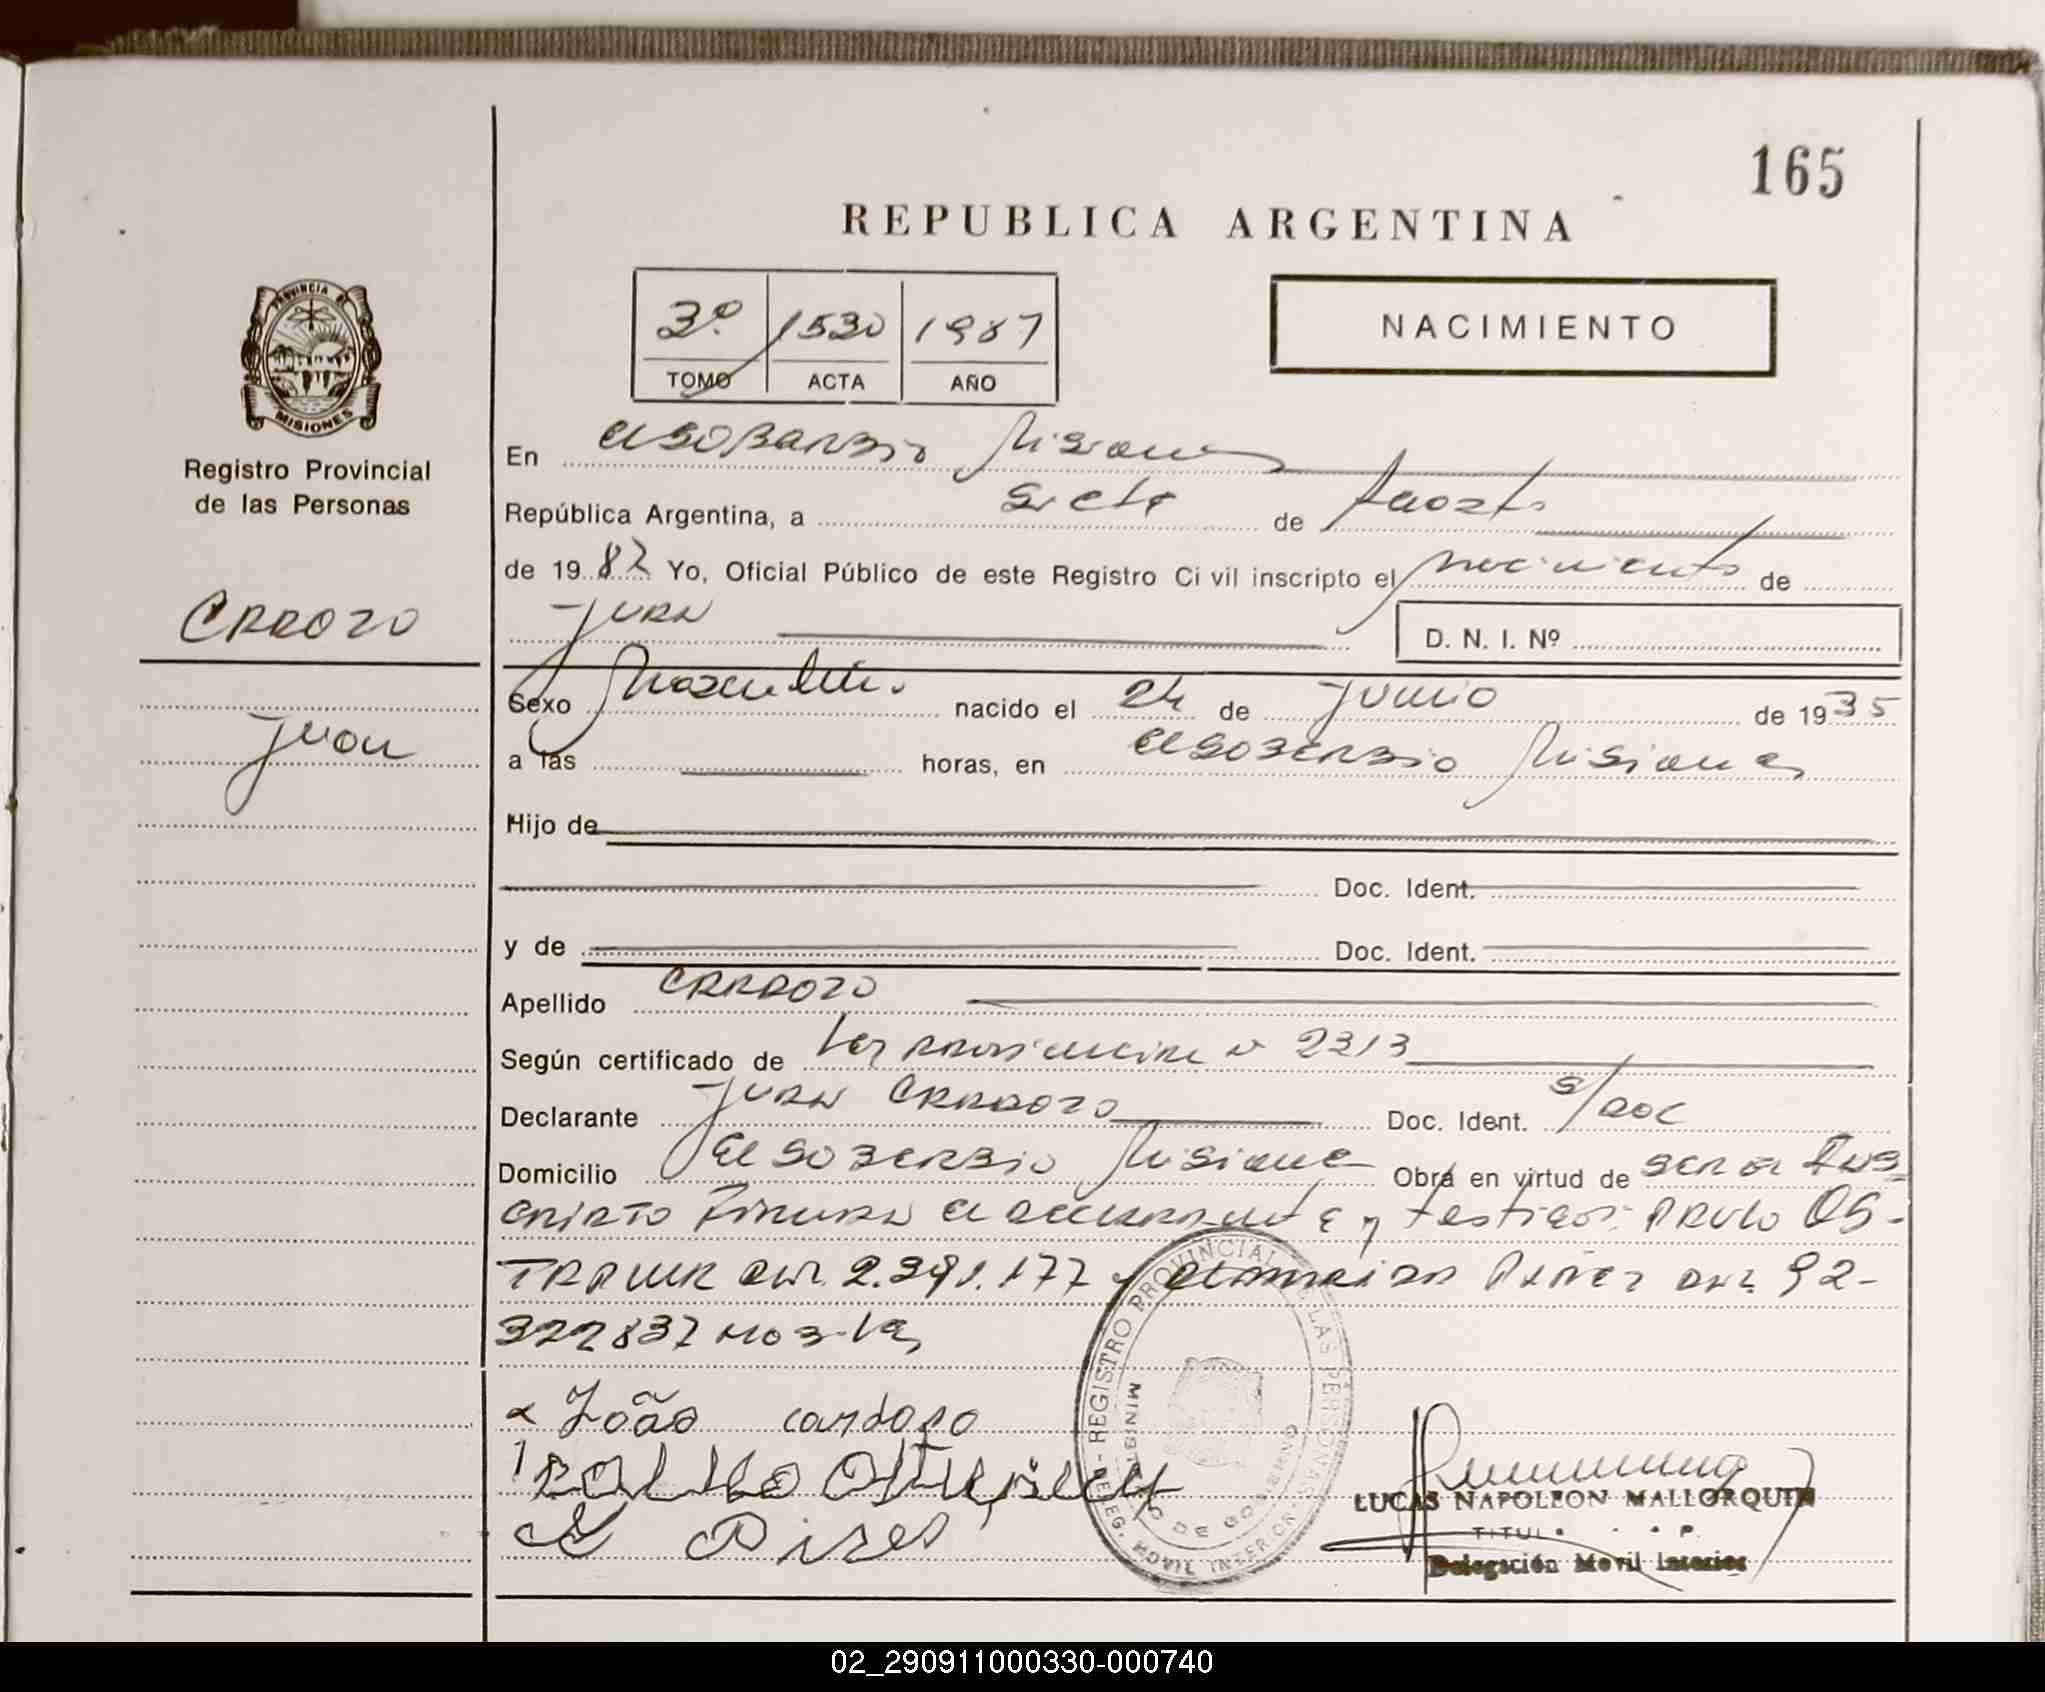 165
REPUBLICA ARGENTINA
3º 1530 1987
TOMO ACTA AÑO
NACIMIENTO
PROVINCIA DE
MISIONES
Registro Provincial
de las Personas
En El Soberbio Misiones
República Argentina, a siete de Agosto
de 19 87 Yo, Oficial Público de este Registro Civil inscripto el nacimiento de
CARDOZO
JUAN
D. N. I. Nº
Juan
Sexo Masculino nacido el 24 de Junio de 19 35
a las horas, en El Soberbio Misiones
Hijo de
Doc. Ident.
y de Doc. Ident.
Apellido CARDOZO
Según certificado de Ley Provincial N 2313
Declarante JUAN CARDOZO Doc. Ident. s/doc
Domicilio El Soberbio Misiones Obra en virtud de ser el Ins-
cripto Firman el declarante y testigos: PAULO OS-
2.391.177 y 92-
322837
x João cardoso
Pires
REGISTRO PROVINCIAL DE LAS PERSONAS
MINISTERIO DE GOBIERNO
DELEG. MOVIL INTERIOR
LUCAS NAPOLEON MALLORQUIN
Delegación Movil Interior
02_290911000330-000740